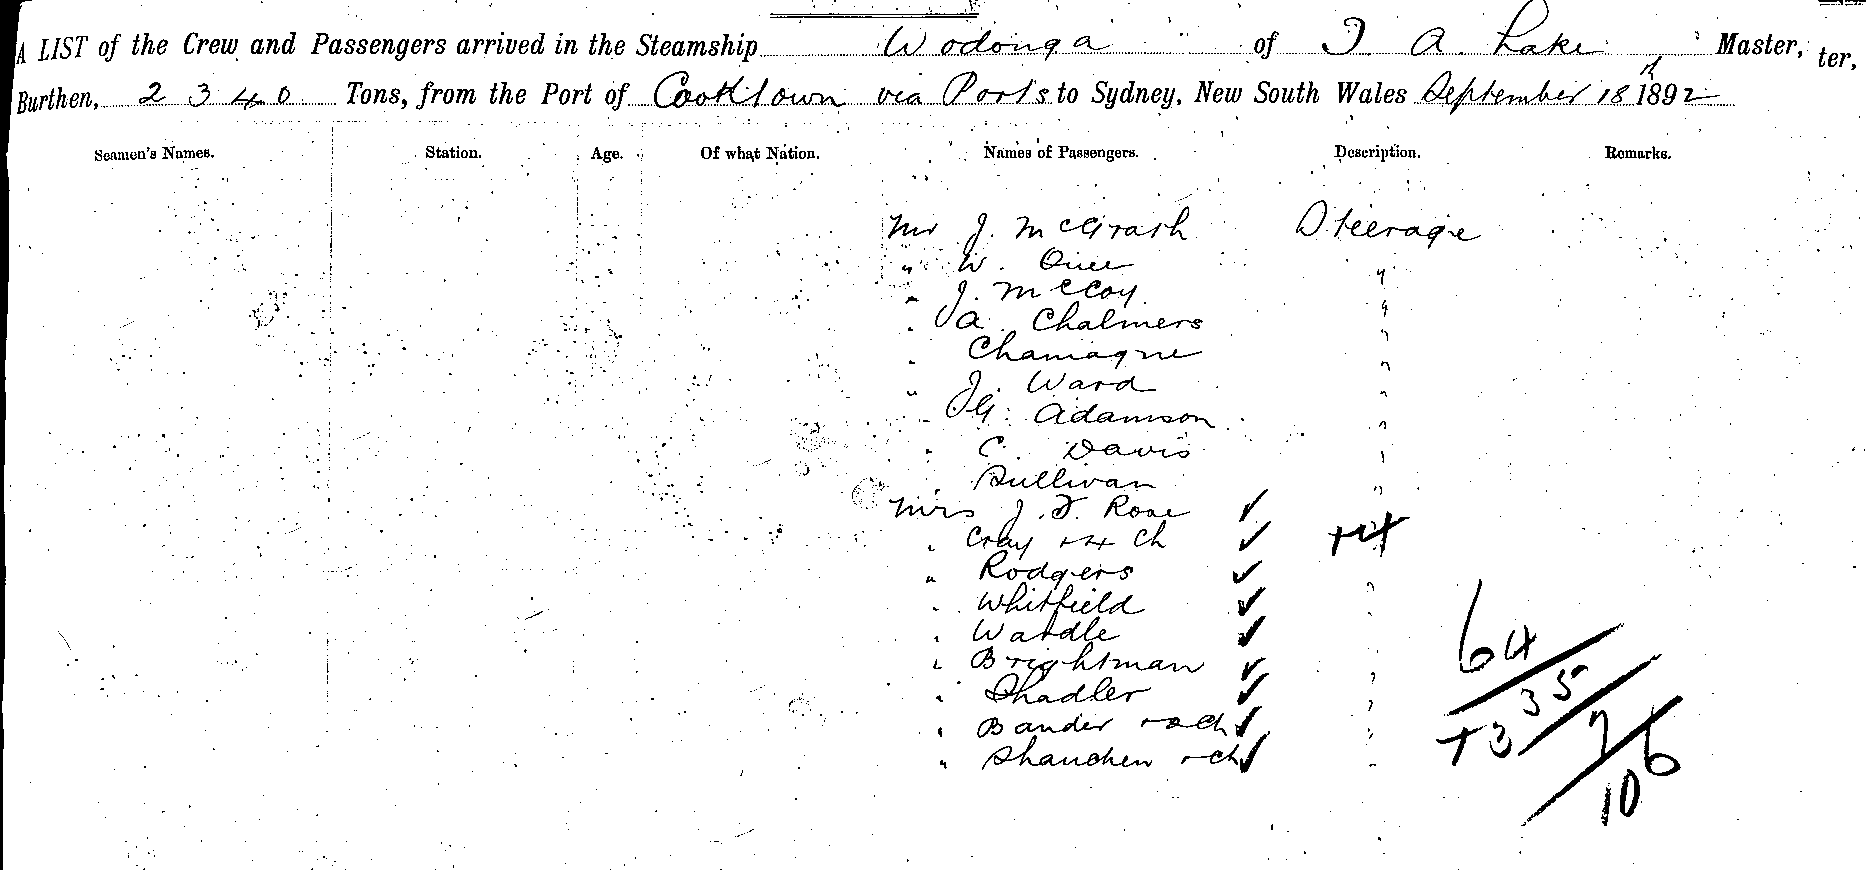 A LIST of the Crew and Passengers arrived in the Steamship Wodonga of T A. Lake Master, ter,
Burthen, 2340 Tons, from the Port of Cooktown via Ports to Sydney, New South Wales September 18th 1892
Seamen's Names. Station. Age. Of what Nation. Names of Passengers. Description. Remarks.
Mr J. McGrath Steerage
" W. "
" J. McCoy "
" A. Chalmers "
" Chamagne "
" J. Ward "
G. Adamson "
" C. Davis "
" Sullivan "
Mrs J. T. Rose ✓
" Cray + 4 Ch ✓ +4
" Rodgers ✓ "
" Whitfield ✓ "
" Wardle ✓
" Brightman ✓ "
" Shadler ✓ "
" Bander + 2 Ch ✓ "
" Shanchen + Ch ✓ "
64
35
+3 7 6
10